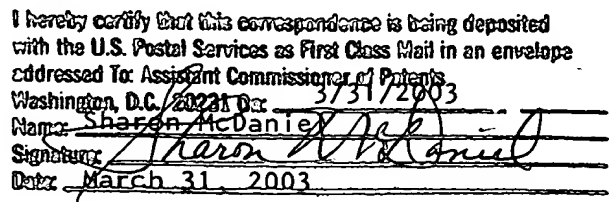 I hereby certify that this correspondence is being deposited
with the U.S. Postal Services as First Class Mail in an envelope
addressed To: Assistant Commissioner of Patents
Washington, D.C. 20231 On: 3/31/2003
Name: Sharon McDaniel
Signature: Sharon McDaniel
Date: March 31, 2003